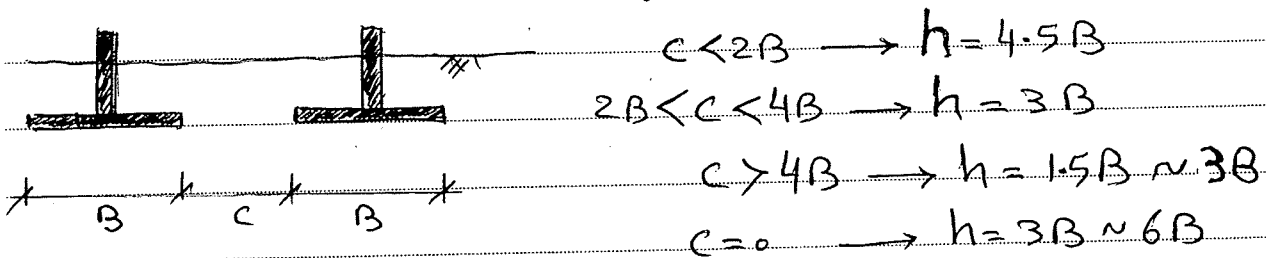 C < 2B → h = 4.5B
2B < C < 4B → h = 3B
C > 4B → h = 1.5B ~ 3B
C = 0 → h = 3B ~ 6B
B C B